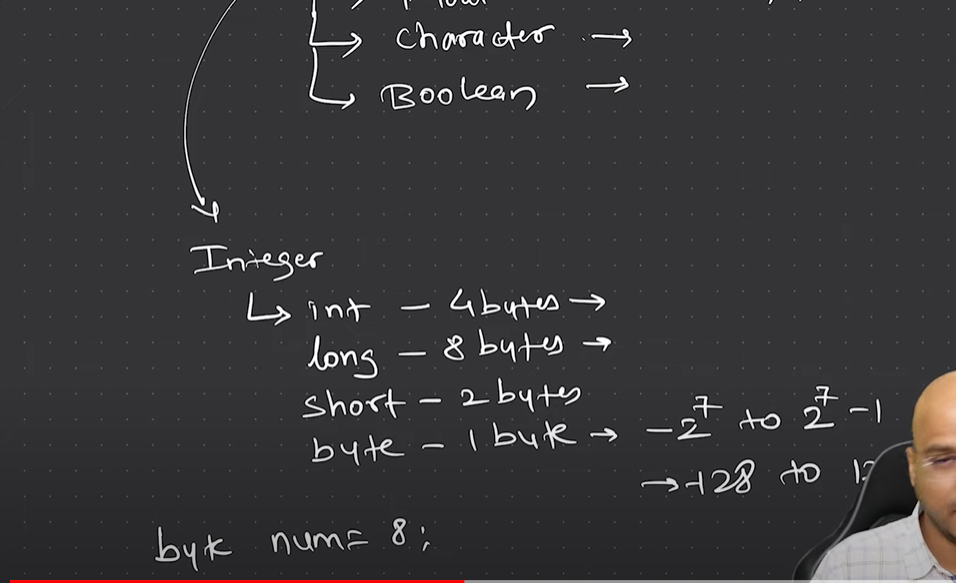 Character →
Boolean →
Integer
↳ int – 4 bytes →
long – 8 bytes →
short – 2 bytes
byte – 1 byte → -2⁷ to 2⁷ -1
→ -128 to
byte num= 8;